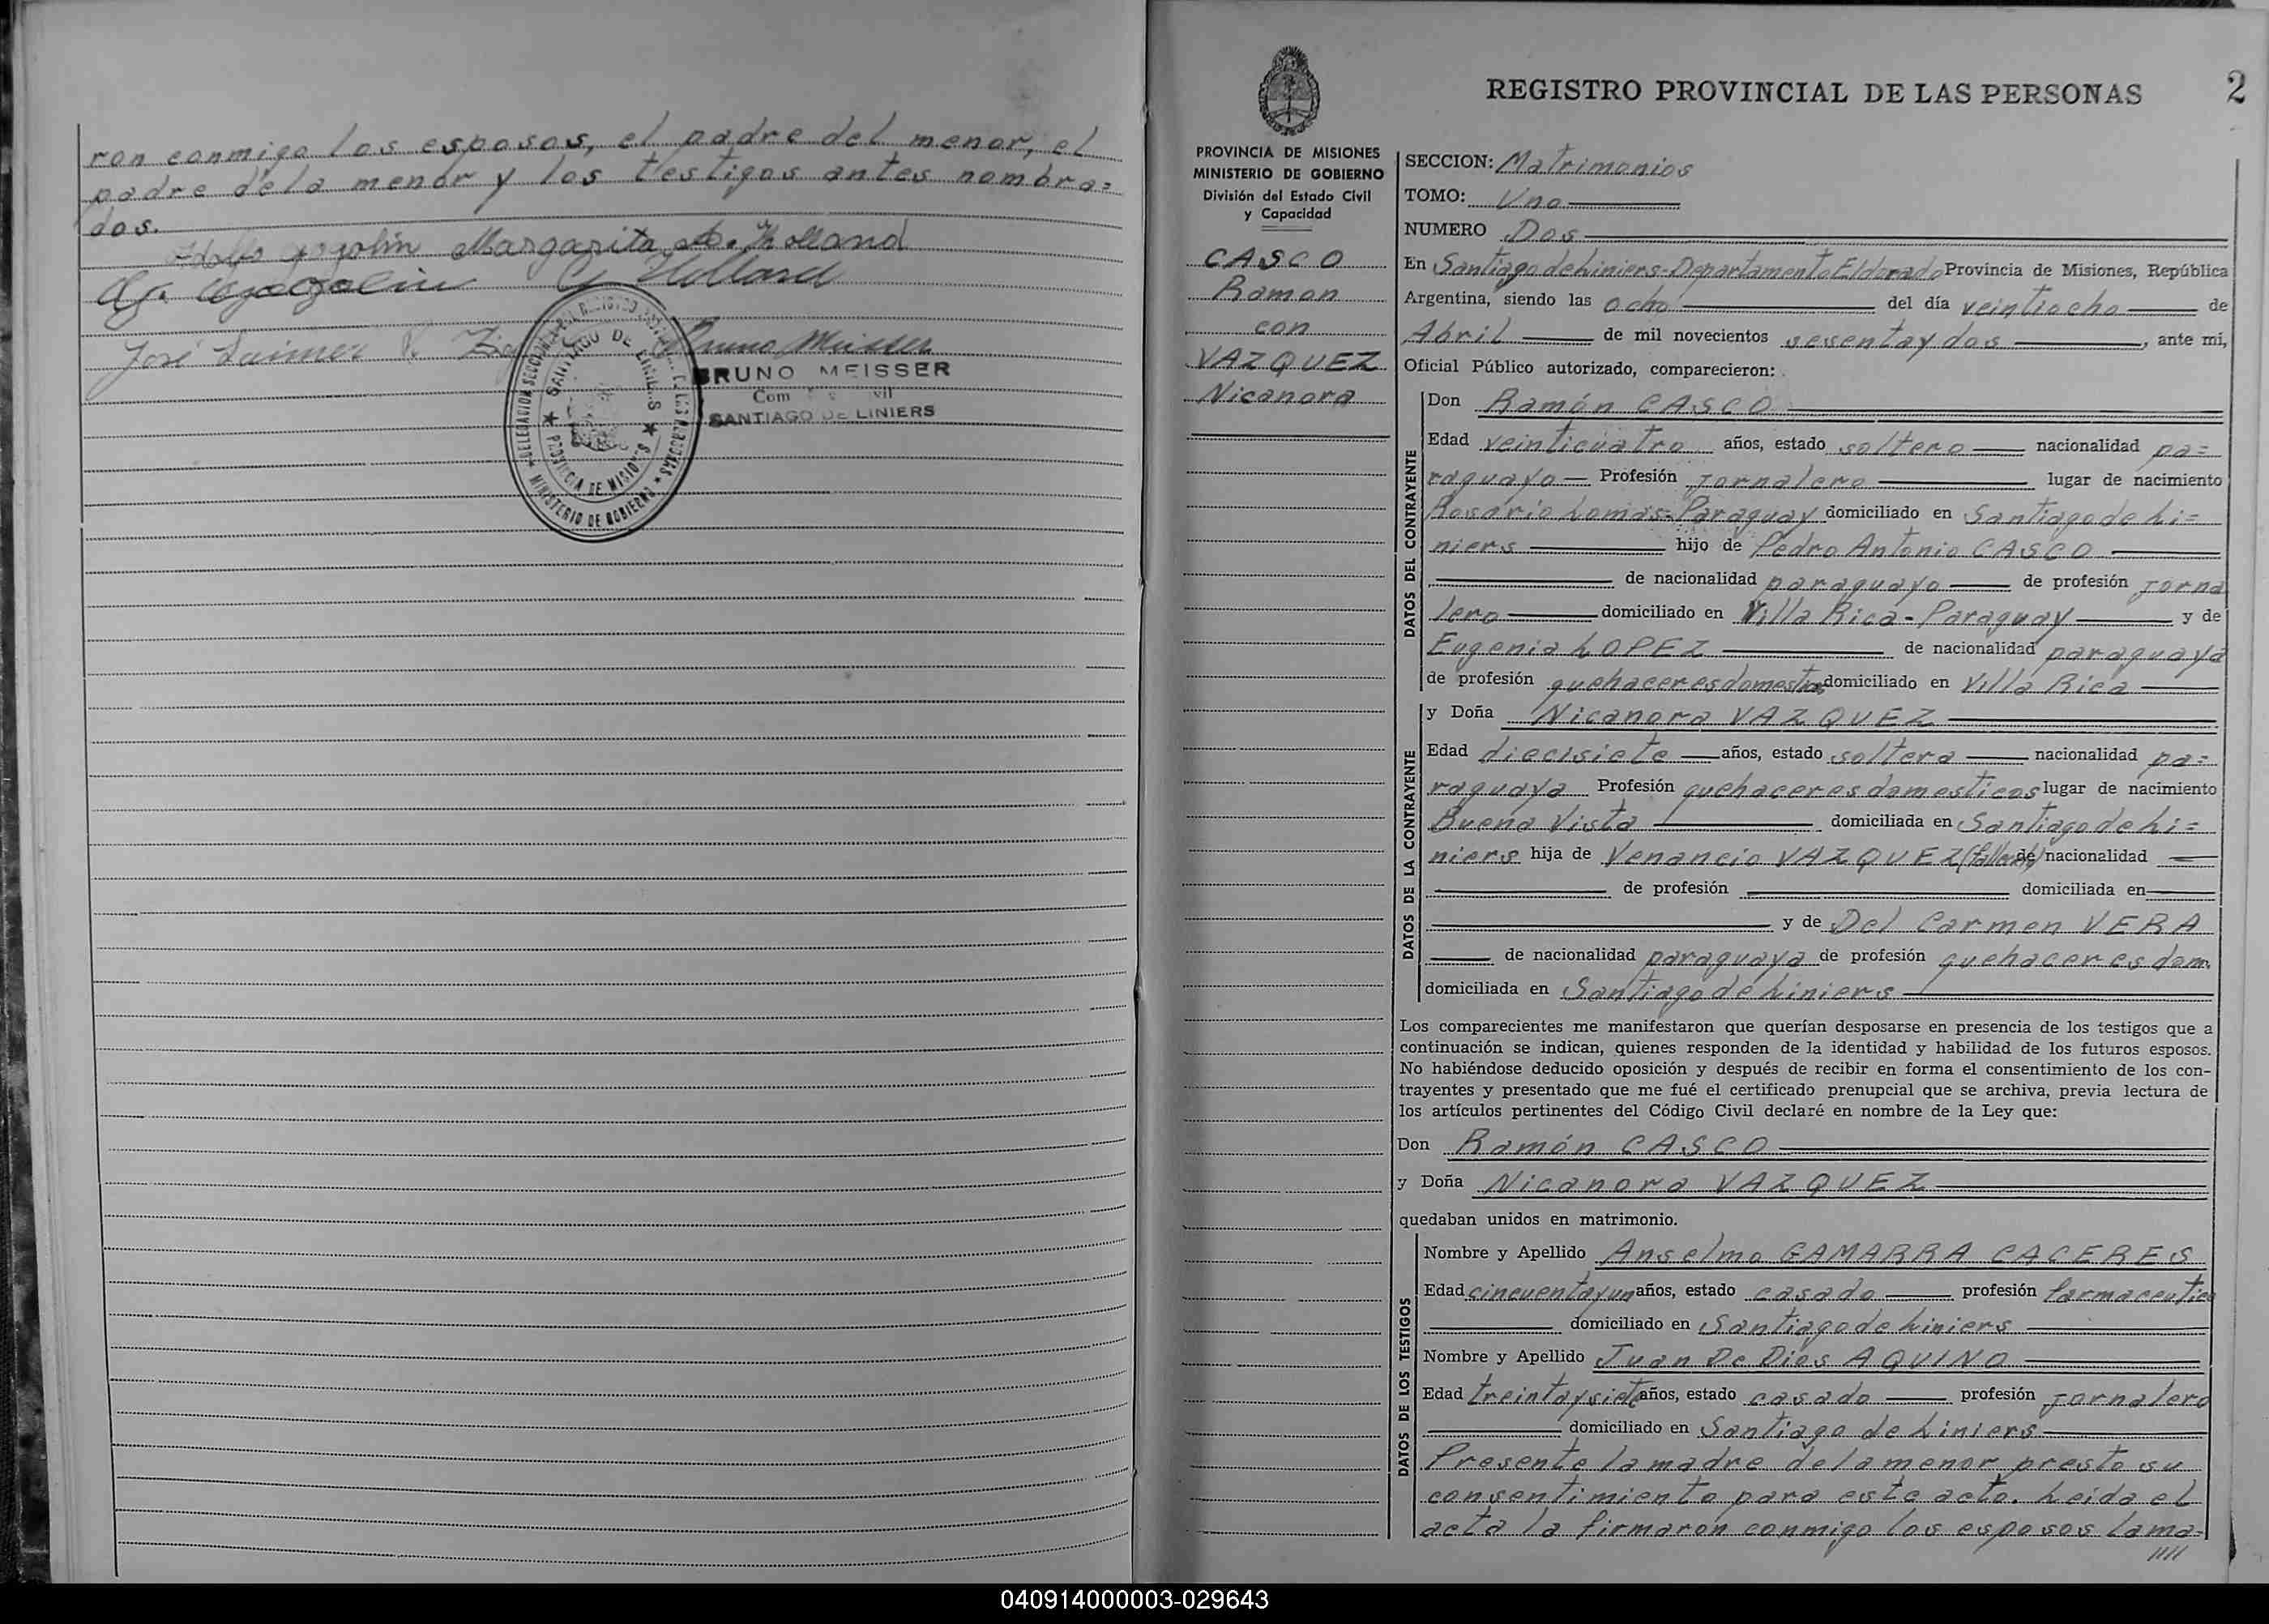 ron conmigo los esposos, el padre del menor, el
padre de la menor y los testigos antes nombra=
dos.
Margarita A. Holland
Holland
José
Bruno Meisser
BRUNO MEISSER
SANTIAGO DE LINIERS
SANTIAGO DE LINIERS
PROVINCIA DE MISIONES
MINISTERIO DE GOBIERNO
REGISTRO PROVINCIAL DE LAS PERSONAS
2
PROVINCIA DE MISIONES
MINISTERIO DE GOBIERNO
División del Estado Civil
y Capacidad
CASCO
Ramon
con
VAZQUEZ
Nicanora
SECCION: Matrimonios
TOMO: Uno
NUMERO Dos
En Santiago de Liniers-Departamento Eldorado Provincia de Misiones, República
Argentina, siendo las ocho del día veintiocho de
Abril de mil novecientos sesenta y dos, ante mi,
Oficial Público autorizado, comparecieron:
DATOS DEL CONTRAYENTE
Don Ramón CASCO
Edad veinticuatro años, estado soltero nacionalidad pa=
raguayo Profesión jornalero lugar de nacimiento
Rosario Lomas-Paraguay domiciliado en Santiago de Li=
niers hijo de Pedro Antonio CASCO
de nacionalidad paraguayo de profesión jorna
lero domiciliado en Villa Rica-Paraguay y de
Eugenia LOPEZ de nacionalidad paraguaya
de profesión quehaceres domesticos domiciliado en Villa Rica
DATOS DE LA CONTRAYENTE
y Doña Nicanora VAZQUEZ
Edad diecisiete años, estado soltera nacionalidad pa=
raguaya Profesión quehaceres domesticos lugar de nacimiento
Buena Vista domiciliada en Santiago de Li=
niers hija de Venancio VAZQUEZ (fallecido) de nacionalidad
de profesión domiciliada en
y de Del Carmen VERA
de nacionalidad paraguaya de profesión quehaceres dom.
domiciliada en Santiago de Liniers
Los comparecientes me manifestaron que querían desposarse en presencia de los testigos que a
continuación se indican, quienes responden de la identidad y habilidad de los futuros esposos.
No habiéndose deducido oposición y después de recibir en forma el consentimiento de los con-
trayentes y presentado que me fué el certificado prenupcial que se archiva, previa lectura de
los artículos pertinentes del Código Civil declaré en nombre de la Ley que:
Don Ramón CASCO
y Doña Nicanora VAZQUEZ
quedaban unidos en matrimonio.
DATOS DE LOS TESTIGOS
Nombre y Apellido Anselmo GAMARRA CACERES
Edad cincuenta y un años, estado casado profesión farmaceutico
domiciliado en Santiago de Liniers
Nombre y Apellido Juan De Dios AQUINO
Edad treinta y siete años, estado casado profesión jornalero
domiciliado en Santiago de Liniers
Presente la madre de la menor presto su
consentimiento para este acto. Leida el
acta la firmaron conmigo los esposos la ma=
////
040914000003-029643